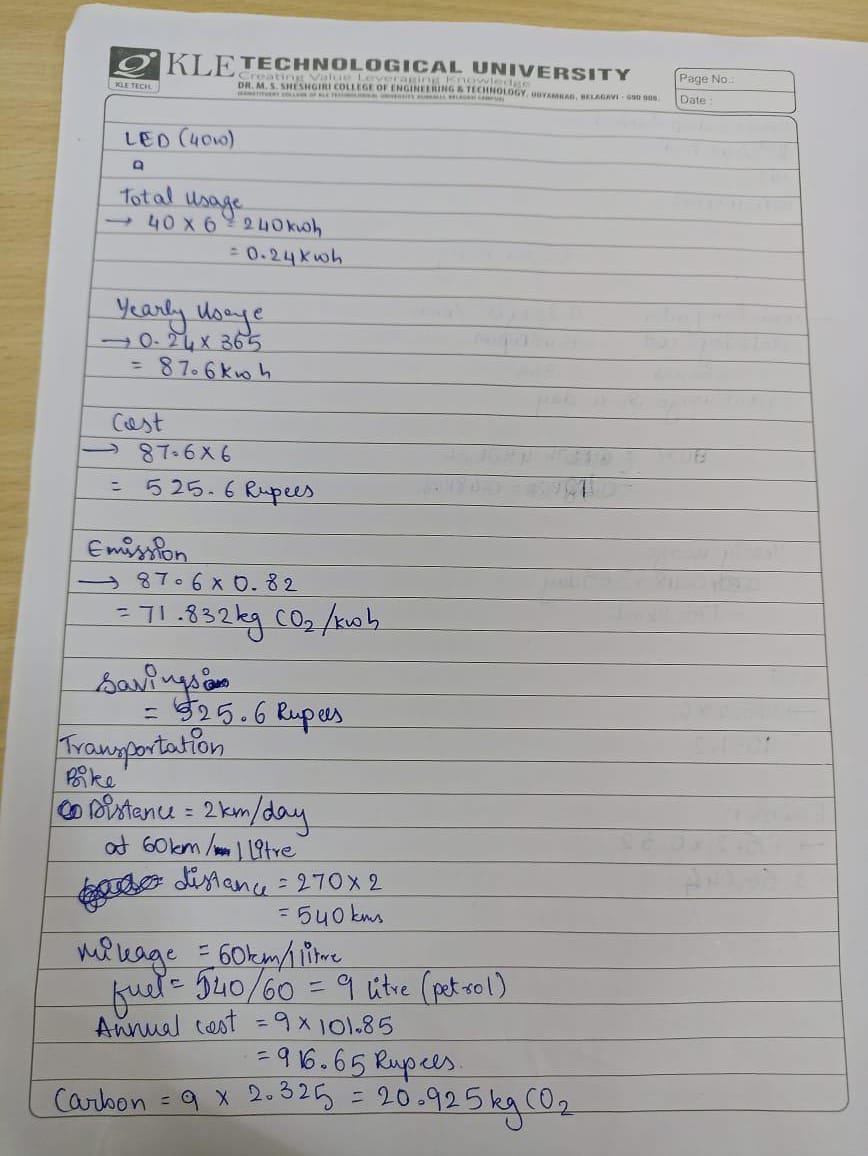 KLE TECHNOLOGICAL UNIVERSITY
KLE TECH.
Creating Value Leveraging Knowledge
DR. M. S. SHESHGIRI COLLEGE OF ENGINEERING & TECHNOLOGY, UDYAMBAG, BELAGAVI - 590 008.
Page No.:
Date :
LED (40w)
Total Usage
→ 40 X 6 = 240kwh
= 0.24kwh
Yearly Usage
→ 0.24 x 365
= 87.6kwh
Cost
→ 87.6 X 6
= 525.6 Rupees
Emission
→ 87.6 x 0.82
= 71.832kg CO2/kwh
Savings
= 525.6 Rupees
Transportation
Bike
Distance = 2km/day
at 60km/1 litre
distance = 270 x 2
= 540 kms
Mileage = 60km/1 litre
fuel = 540/60 = 9 litre (petrol)
Annual cost = 9 x 101.85
= 916.65 Rupees.
Carbon = 9 x 2.325 = 20.925kg CO2